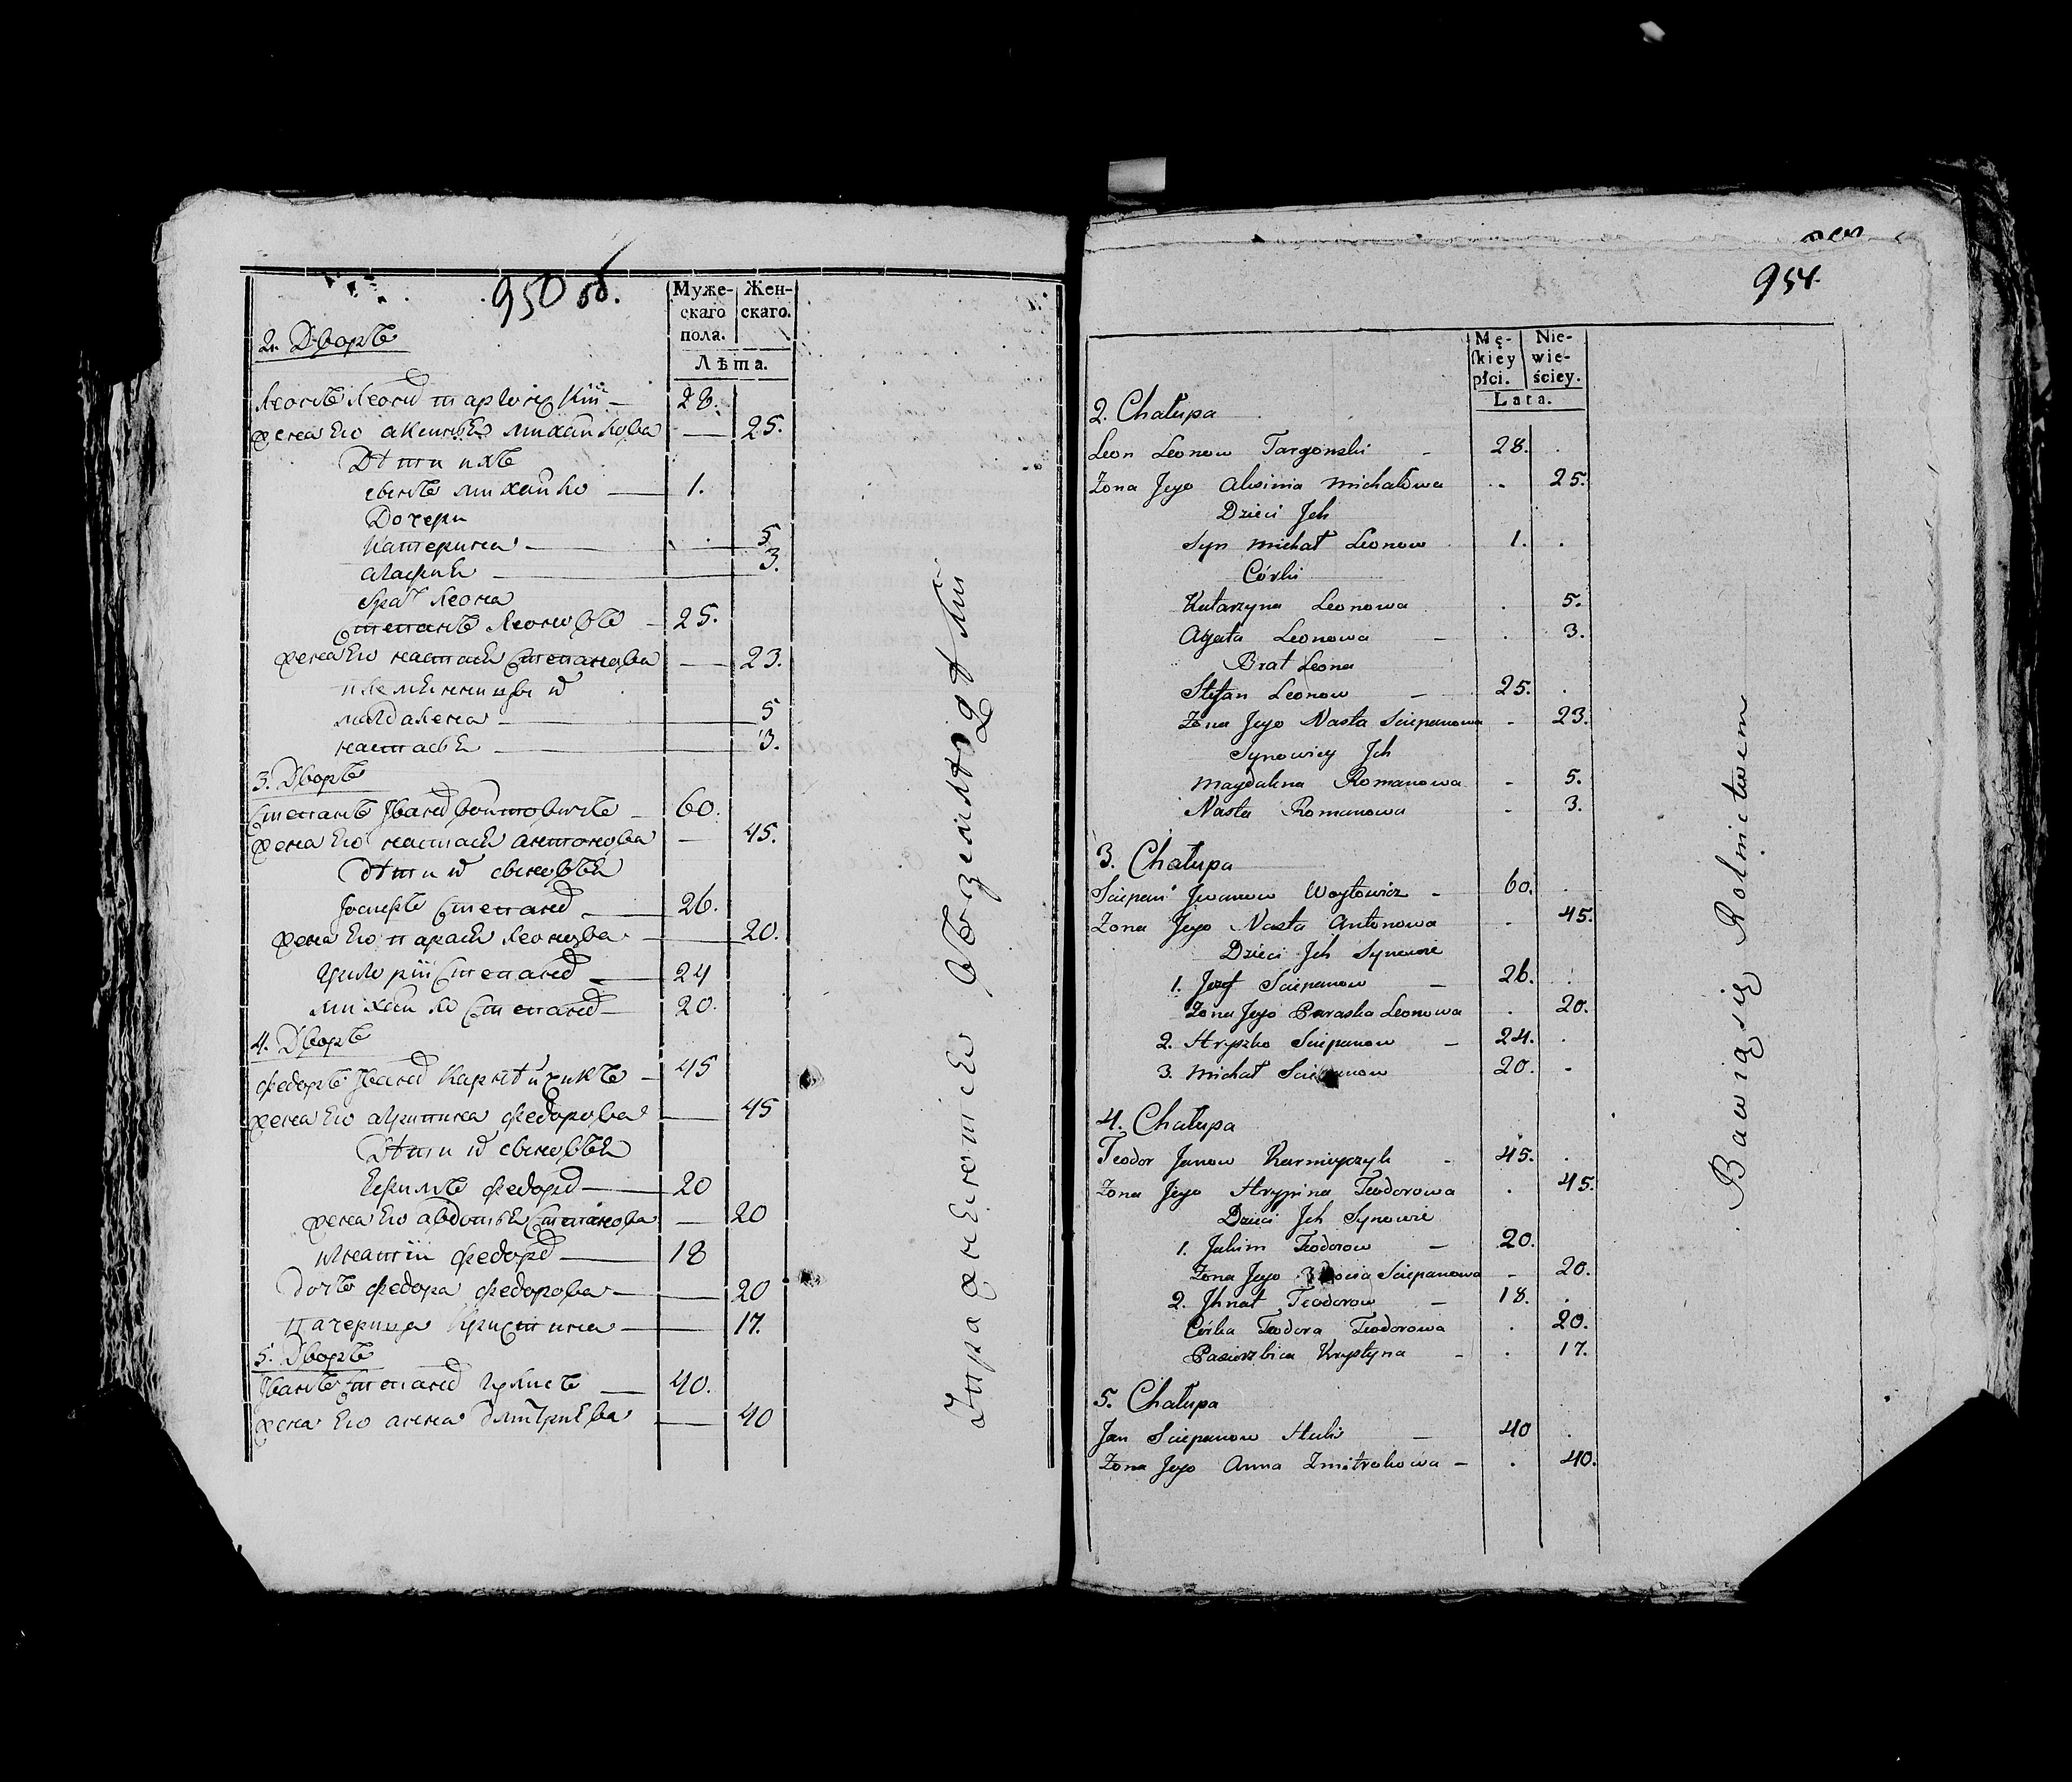 950 об.
Муже-
скаго
пола.
Жен-
скаго.
Лѣта.
2. Дворъ
Леонъ Леоновъ Таргонскій — 28.
жена Его Аксинья Михайлова — 25.
Дѣти ихъ
сынъ Михайло — 1.
Дочери
Катерина — 5
Агафия — 3.
братъ Леона
Степанъ Леоновъ — 25.
жена Его Настася Степанова — 23.
племянницы
Магдалена — 5
Настасья — 3.
3. Дворъ
Степанъ Ивановъ Войтовичъ — 60.
жена Его Настася Антонова — 45.
Дѣти сыновья
Іосифъ Степановъ — 26.
жена Его Парася Леонова — 20.
Григорій Степановъ — 24
Михайло Степановъ — 20.
4. Дворъ
Федоръ Ивановъ Карнѣйчикъ — 45
жена Его Агрипина Федорова — 45
Дѣти сыновья
Ефимъ Федоровъ — 20
жена Его Авдотья Степанова — 20
Игнатій Федоровъ — 18
Дочь Федора Федорова — 20
Пачерица Кристина — 17.
5. Дворъ
Иванъ Степановъ — 40.
жена Его Анна Дмитріева — 40
Упражняются въ Земледѣліи
954.
Mę-
skiey
płci.
Nie-
wie-
ściey.
Lata.
2. Chałupa
Leon Leonow Targonski - 28. .
Zona Jego Aksinia Michałowa .. 25.
Dzieci Jch
Syn Michał Leonow 1. .
Córki
Katarzyna Leonowa . 5.
Agata Leonowa - . 3.
Brat Leona
Stefan Leonow - 25. .
Zona Jego Nasta Sciepanowa - 23.
Synowicy Jch
Magdalena Romanowa - 5.
Nasta Romanowa - 3.
3. Chałupa
Sciepan Jwanow Woytowicz - 60. .
Zona Jego Nasta Antonowa . 45.
Dzieci Jch Synowie
1. Jozef Sciepanow - 26. .
Zona Jego Paraska Leonowa . 20.
2. Hryszko Sciepanow - 24. .
3. Michał Sciepanow 20. -
4. Chałupa
Teodor Janow Karnieyczyk - 45. .
Zona Jego Hrypina Teodorowa . 45.
Dzieci Jch Synowie
1. Jakim Teodorow - 20.
Zona Jego Sciepanowa - 20.
2. Jhnat Teodorow - 18. .
Córka Teodora Teodorowa . 20.
Pasierzbica Krystyna - . 17.
5. Chałupa
Jan Sciepanow - 40 .
Zona Jego Anna Zmitrokowa - . 40.
Bawią się Rolnictwem